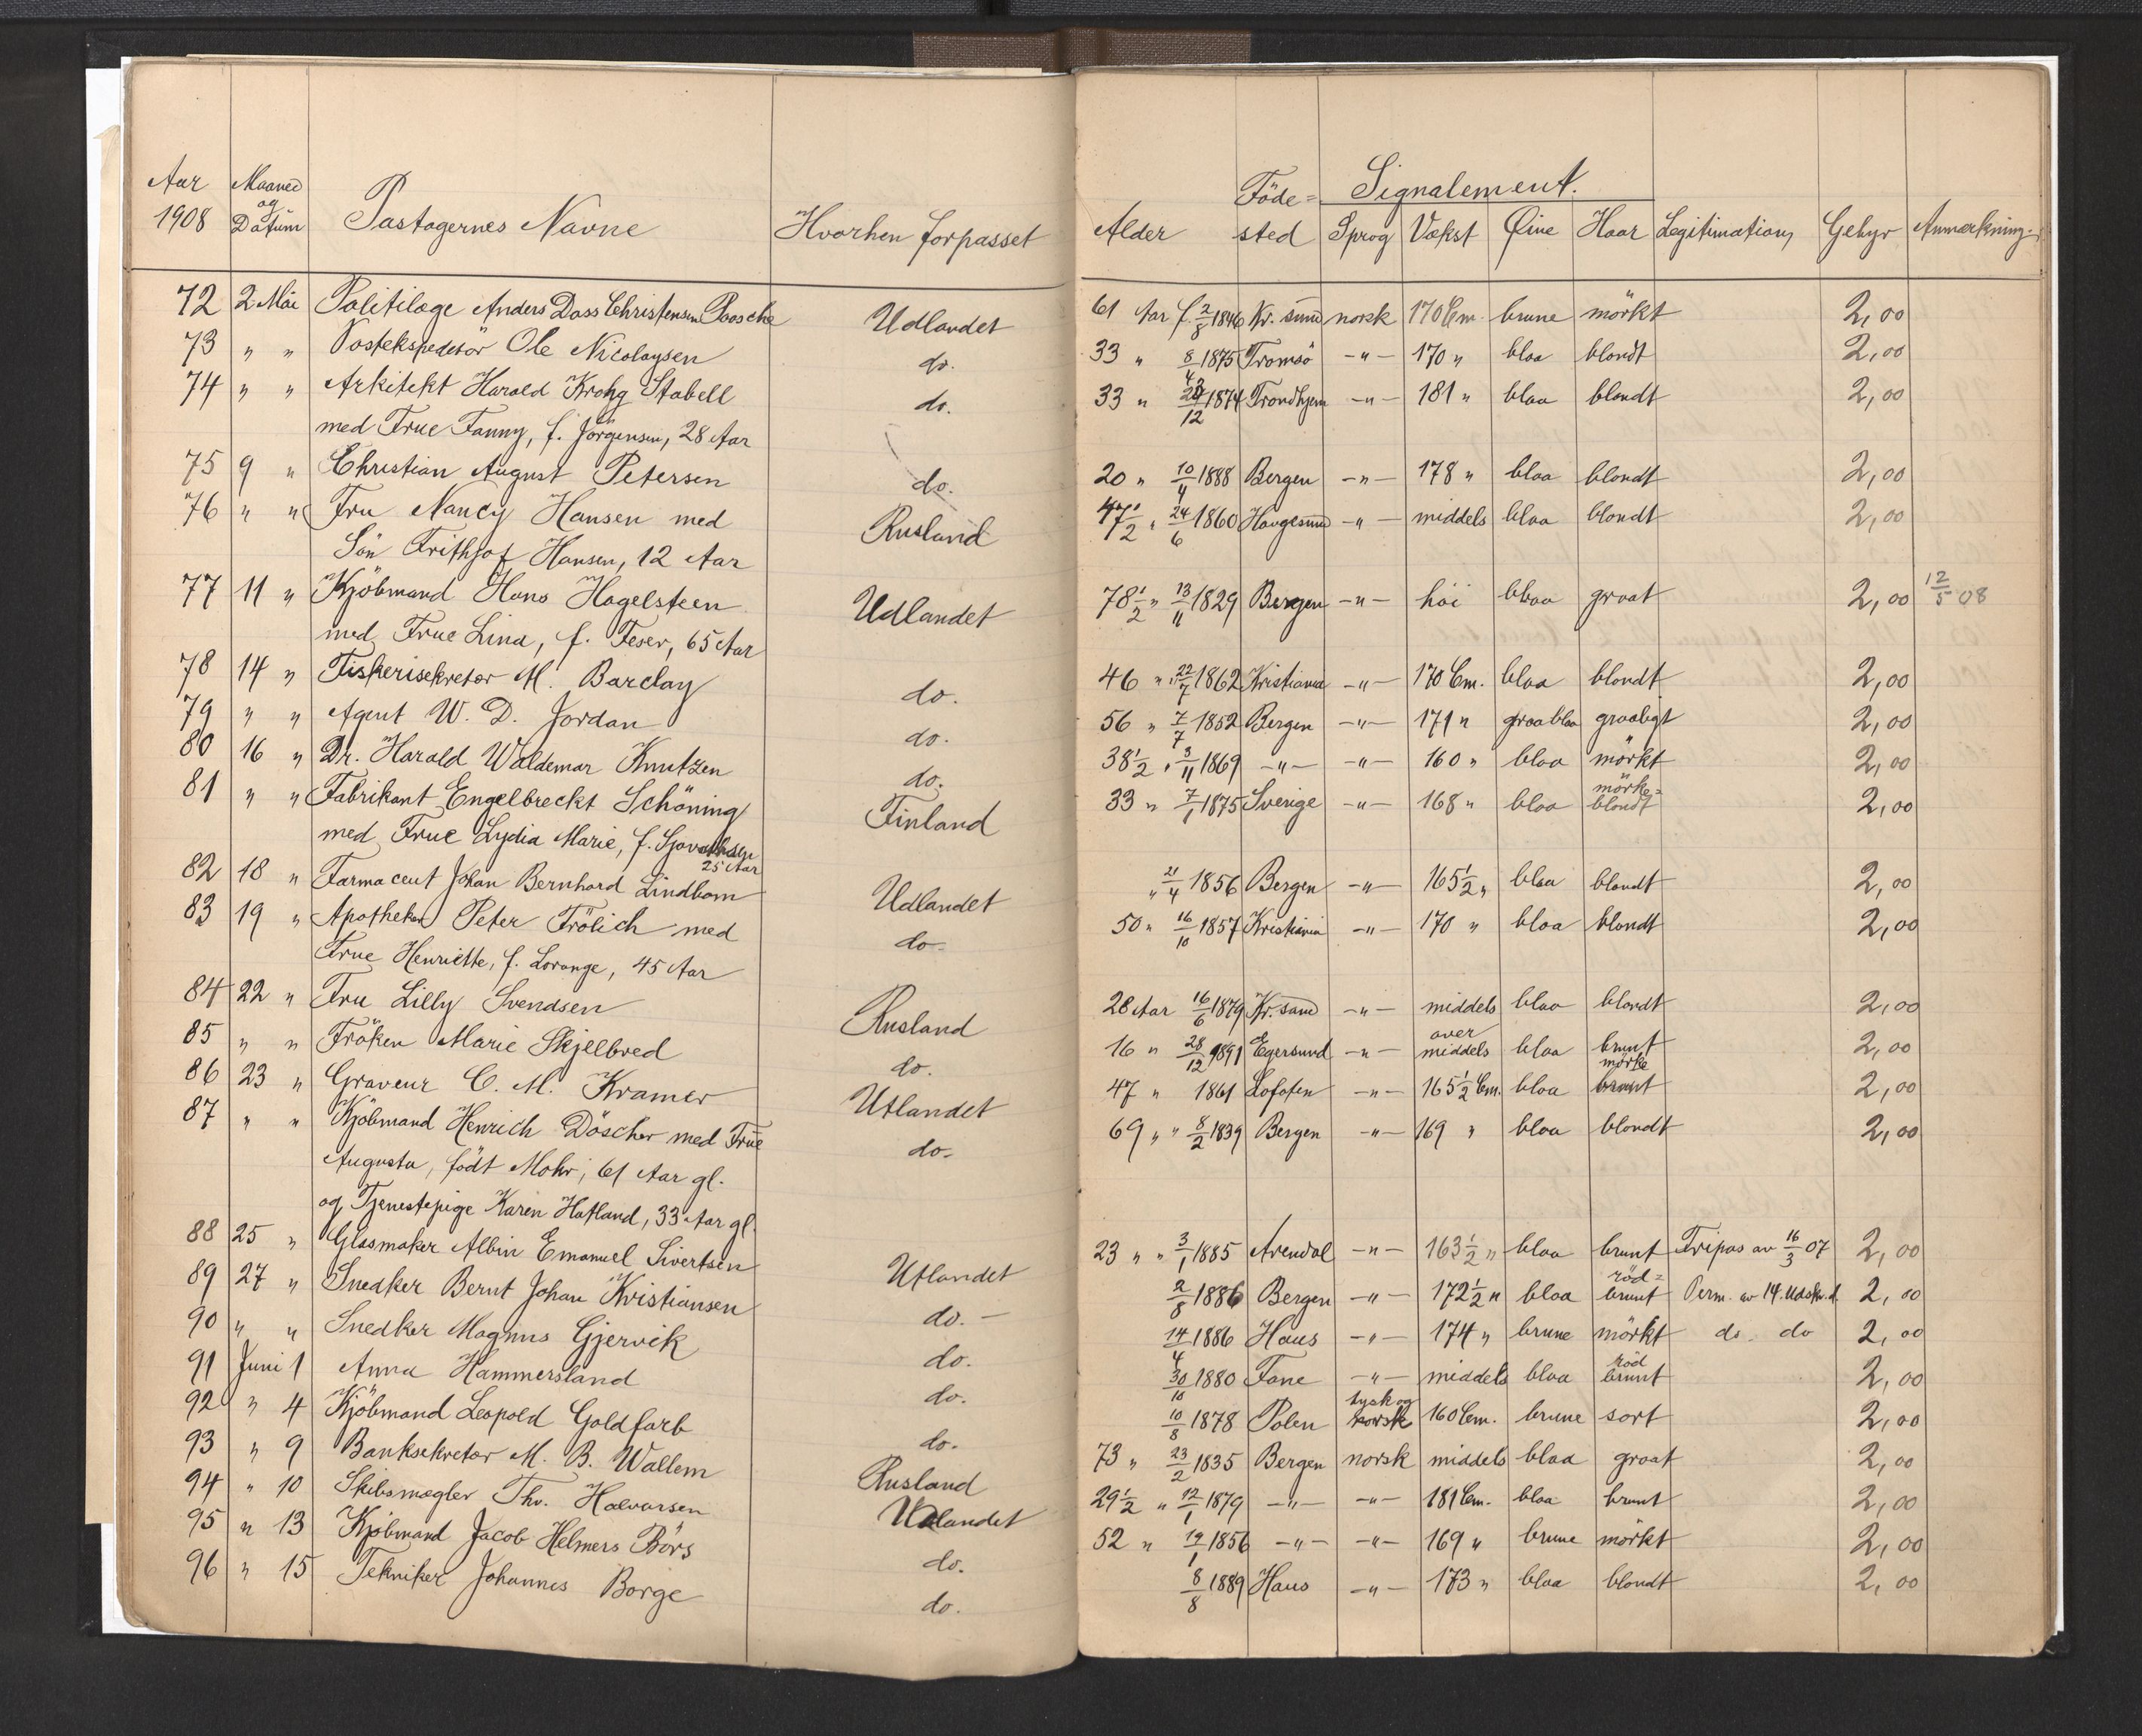 Aar Maaned og Datum Pastagernes Navne Hvorhen forpasset Alder Föde= sted Signalement.
1908 Sprog Vækst Øine Haar Legitimation Gebyr Anmærkning.
72 2 Mai Politilæge Anders Dass Christensen Paasche Udlandet 61 Aar f. 2/8 1846 Kr. sund norsk 170 Cm. brune mörkt 2,00
73 " " Postekspeditör Ole Nicolaysen do. 33 " 8/4 1875 Tromsö -"- 170 " blaa blondt 2,00
74 " " Arkitekt Harald Krohg Stabell do. 33 " /12 1874 Trondhjem -"- 181 " blaa blondt 2,00
med Frue Fanny, f. Jörgensen, 28 Aar
75 9 " Christian August Petersen do. 20 " 10/4 1888 Bergen -"- 178 " blaa blondt 2,00
76 " " Fru Nancy Hansen med Rusland 47 1/2 " 24/6 1860 Haugesund -"- middels blaa blondt 2,00
Sön Frithjof Hansen, 12 Aar
77 11 " Kjöbmand Hans Hagelsteen Udlandet 78 1/2 " 13/11 1829 Bergen -"- höi blaa graat 2,00 12/5 08
med Frue Lina, f. Feser, 65 Aar
78 14 " Fiskerisekretær M. Barclay do. 46 " 22/7 1862 Kristiania -"- 170 Cm. blaa blondt 2,00
79 " " Agent W. D. Jordan do. 56 " 7/7 1852 Bergen -"- 171 " graablaa graaligt 2,00
80 16 " Dr. Harald Waldemar Knutzen do. 38 1/2 " 3/11 1869 -"- -"- 160 " blaa mörkt 2,00
81 " " Fabrikant Engelbreckt Schöning Finland 33 " 7/1 1875 Sverige -"- 168 " blaa mörke= blondt 2,00
med Frue Lydia Marie, f. 25 Aar
82 18 " Farmaceut Johan Bernhard Lindbom Udlandet " 21/4 1856 Bergen -"- 165 1/2 " blaa blondt 2,00
83 19 " Apotheker Peter Frölich med do. 50 " 16/10 1857 Kristiania -"- 170 " blaa blondt 2,00
Frue Henriette, f. Lorange, 45 Aar
84 22 " Fru Lilly Svendsen Rusland 28 Aar 16/6 1879 Kr. sand -"- middels blaa blondt 2,00
85 " " Fröken Marie Skjelbred do. 16 " 28/12 1891 Egersund -"- over middels blaa brunt 2,00
86 23 " Graveur C. M. Kramer Utlandet 47 " 1861 Lofoten -"- 165 1/2 Cm. blaa mörke brunt 2,00
87 " " Kjöbmand Henrich Döscher med Frue do. 69 " " 8/2 1839 Bergen -"- 169 " blaa blondt 2,00
Augusta, födt Mohr, 61 Aar gl.
og Tjenestepige Karen Hatland, 33 Aar gl.
88 25 " Glasmaker Albin Emanuel Sivertsen Utlandet 23 " " 3/1 1885 Arendal -"- 163 1/2 " blaa brunt Fripas av 16/3 07 2,00
89 27 " Snedker Bernt Johan Kristiansen do. - 2/8 1886 Bergen -"- 172 1/2 " blaa röd= brunt Perm. av 14. Udskr. d. 2,00
90 " " Snedker Magnus Gjervik do. 14/4 1886 Haus -"- 174 " brune mörkt do. do 2,00
91 Juni 1 Anna Hammersland do. 30/10 1880 Fane -"- middels blaa röd brunt 2,00
92 " 4 Kjöbmand Leopold Goldfarb do. 10/8 1878 Polen tysk og norsk 160 Cm. brune sort 2,00
93 " 9 Banksekretær M. B. Wallem Rusland 73 " 23/2 1835 Bergen norsk middels blaa graat 2,00
94 " 10 Skibsmægler Thv. Halvorsen Udlandet 29 1/2 " 12/1 1879 -"- -"- 181 Cm. blaa brunt 2,00
95 " 13 Kjöbmand Jacob Helmers Börs do. 52 " 19/1 1856 -"- -"- 169 " brune mörkt 2,00
96 " 15 Tekniker Johannes Borge do. 8/8 1889 Haus -"- 173 " blaa blondt 2,00